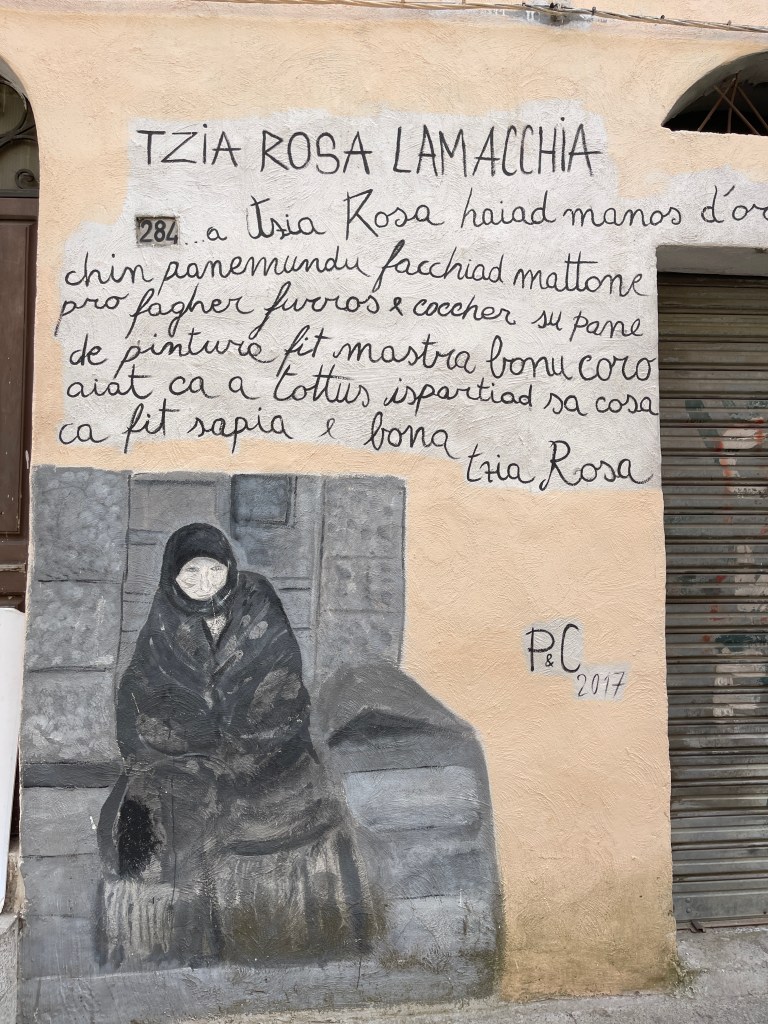 TZIA ROSA LAMACCHIA
284 ...a Tzia Rosa haiad manos d'or
chin panemundu facchiad mattone
pro fagher furros e coccher su pane
de pintura fit mastra bonu coro
aiat ca a tottus ispartiad sa cosa
ca fit sapia e bona
tzia Rosa
P&C
2017